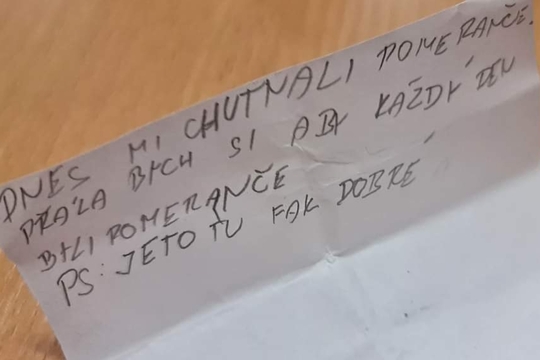 DNES MI CHUTNALI POMERANČE.
PRÁLA BYCH SI ABY KAŽDÝ DEN
BYLI POMERANČE
PS: JETO TU FAK DOBRÉ